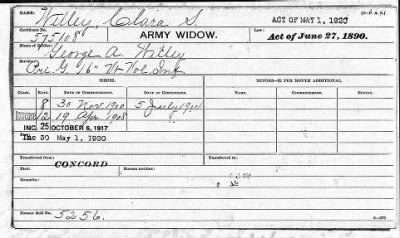 NAME: Willey, Clara S. ACT OF MAY 1, 1920
Certificate No. 575108 ARMY WIDOW. Law: Act of June 27, 1890.
Name of Soldier: George A. Willey
Service: Pri. G. 16" Vt. Vol. Inf.
ISSUE. MINORS—$2 PER MONTH ADDITIONAL.
CLASS. RATE. DATE OF COMMENCEMENT. DATE OF CERTIFICATE. NAME. COMMENCEMENT.
8 30 Nov. 1900 5 July 1904
12 19 Apr. 1908
INC. 25 OCTOBER 6, 1917
Inc 30 May 1, 1920
Transferred from CONCORD Transferred to
Died:
Remarks:
Former Roll No. 5256.